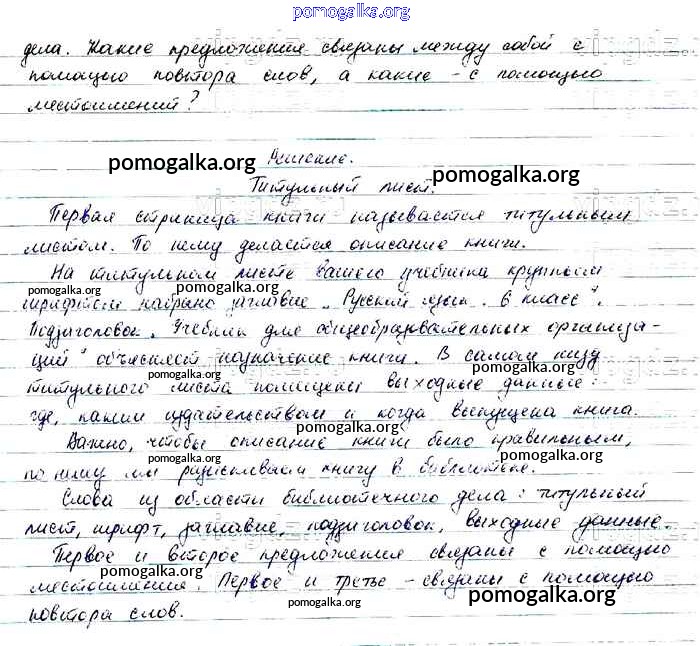 pomogalka.org
дела. Какие предложения связаны между собой с
помощью повтора слов, а какие - с помощью
местоимений?
Решение.
pomogalka.org
pomogalka.org
Титульный лист.
Первая страница книги называется титульным
листом. По нему делается описание книги.
На титульном листе вашего учебника крупным
pomogalka.org pomogalka.org pomogalka.org
шрифтом набрано заглавие „Русский язык. 6 класс".
Подзаголовок „Учебник для общеобразовательных организа-
ций" объясняет назначение книги. В самом низу
pomogalka.org pomogalka.org
титульного листа помещены выходные данные:
где, каким издательством и когда выпущена книга.
pomogalka.org
Важно, чтобы описание книги было правильным,
по нему мы разыскиваем книгу в библиотеке.
pomogalka.org pomogalka.org
Слова из области библиотечного дела: титульный
лист, шрифт, заглавие, подзаголовок, выходные данные.
Первое и второе предложения связаны с помощью
местоимения. Первое и третье - связаны с помощью
pomogalka.org pomogalka.org pomogalka.org
повтора слов.